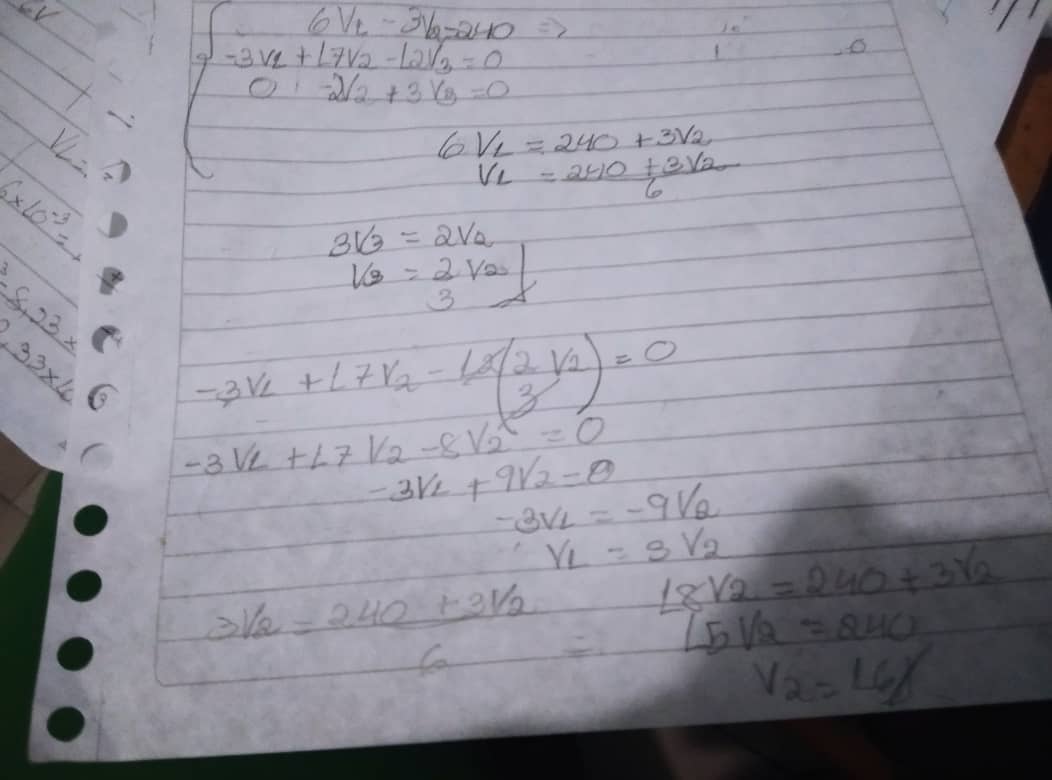 6V1 - 3V2 = 240 =>
-3V1 + 17V2 - 12V3 = 0
0 -2V2 + 3V3 = 0
6V1 = 240 + 3V2
V1 = 240 + 3V2
6
3V3 = 2V2
V3 = 2 V2
3
-3V1 + 17V2 - 12(2 V2) = 0
3
-3V1 + 17V2 - 8V2 = 0
-3V1 + 9V2 = 0
-3V1 = -9V2
V1 = 3V2
3V2 = 240 + 3V2
6
=
18V2 = 240 + 3V2
15V2 = 240
V2 = 16
6x10-3